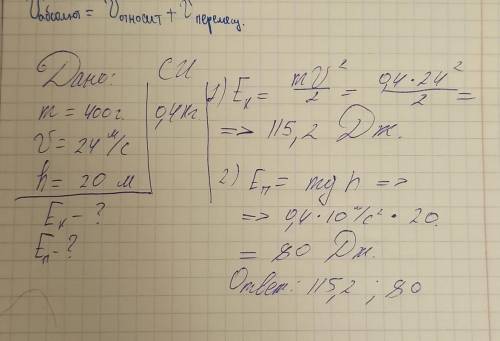 Vабсолют = Vотносит + Vперемещ.
Дано:
СИ
m = 400г.
0,4кг
V = 24 м/с
h = 20 м
Eк - ?
Eп - ?
1) Eк = mV²/2 = 0,4·24²/2 =
=> 115,2 Дж.
2) Eп = mgh =>
=> 0,4·10 м/с²·20.
= 80 Дж.
Ответ: 115,2 ; 80